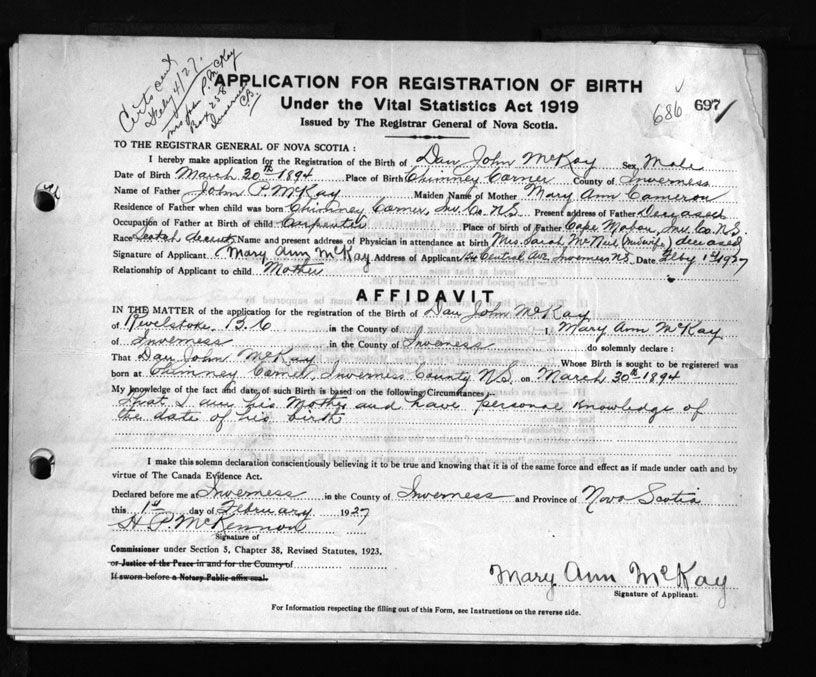 Certs sent
Feby 4/27.
Mrs John P. McKay
Box 258
Inverness
C.B.
APPLICATION FOR REGISTRATION OF BIRTH
Under the Vital Statistics Act 1919
686 697
Issued by The Registrar General of Nova Scotia.
TO THE REGISTRAR GENERAL OF NOVA SCOTIA :
I hereby make application for the Registration of the Birth of Dan John McKay Sex Male
Date of Birth March 20th 1894 Place of Birth Chimney Corner County of Inverness
Name of Father John P. McKay Maiden Name of Mother Mary Ann Cameron
Residence of Father when child was born Chimney Corner, Inv. Co. N.S. Present address of Father Deceased
Occupation of Father at Birth of child Carpenter Place of birth of Father Cape Mabou, Inv. Co. N.S.
Race Scotch descent Name and present address of Physician in attendance at birth Mrs. Sarah McNeil (midwife) deceased
Signature of Applicant Mary Ann McKay Address of Applicant Central Ave Inverness N.S. Date Feby 1st 1927
Relationship of Applicant to child Mother
AFFIDAVIT
IN THE MATTER of the application for the registration of the Birth of Dan John McKay
of Revelstoke, B.C in the County of I, Mary Ann McKay
of Inverness in the County of Inverness do solemnly declare :
That Dan John McKay Whose Birth is sought to be registered was
born at Chimney Corner, Inverness County N.S. on March 20th 1894
My knowledge of the fact and date of such Birth is based on the following Circumstances
That I am his Mother and have personal knowledge of
the date of his birth
I make this solemn declaration conscientiously believing it to be true and knowing that it is of the same force and effect as if made under oath and by
virtue of The Canada Evidence Act.
Declared before me at Inverness in the County of Inverness and Province of Nova Scotia
this 1st day of February 1927
Signature of
Commissioner under Section 3, Chapter 38, Revised Statutes, 1923,
or Justice of the Peace in and for the County of
If sworn before a Notary Public affix seal.
Mary Ann McKay
Signature of Applicant.
For Information respecting the filling out of this Form, see Instructions on the reverse side.